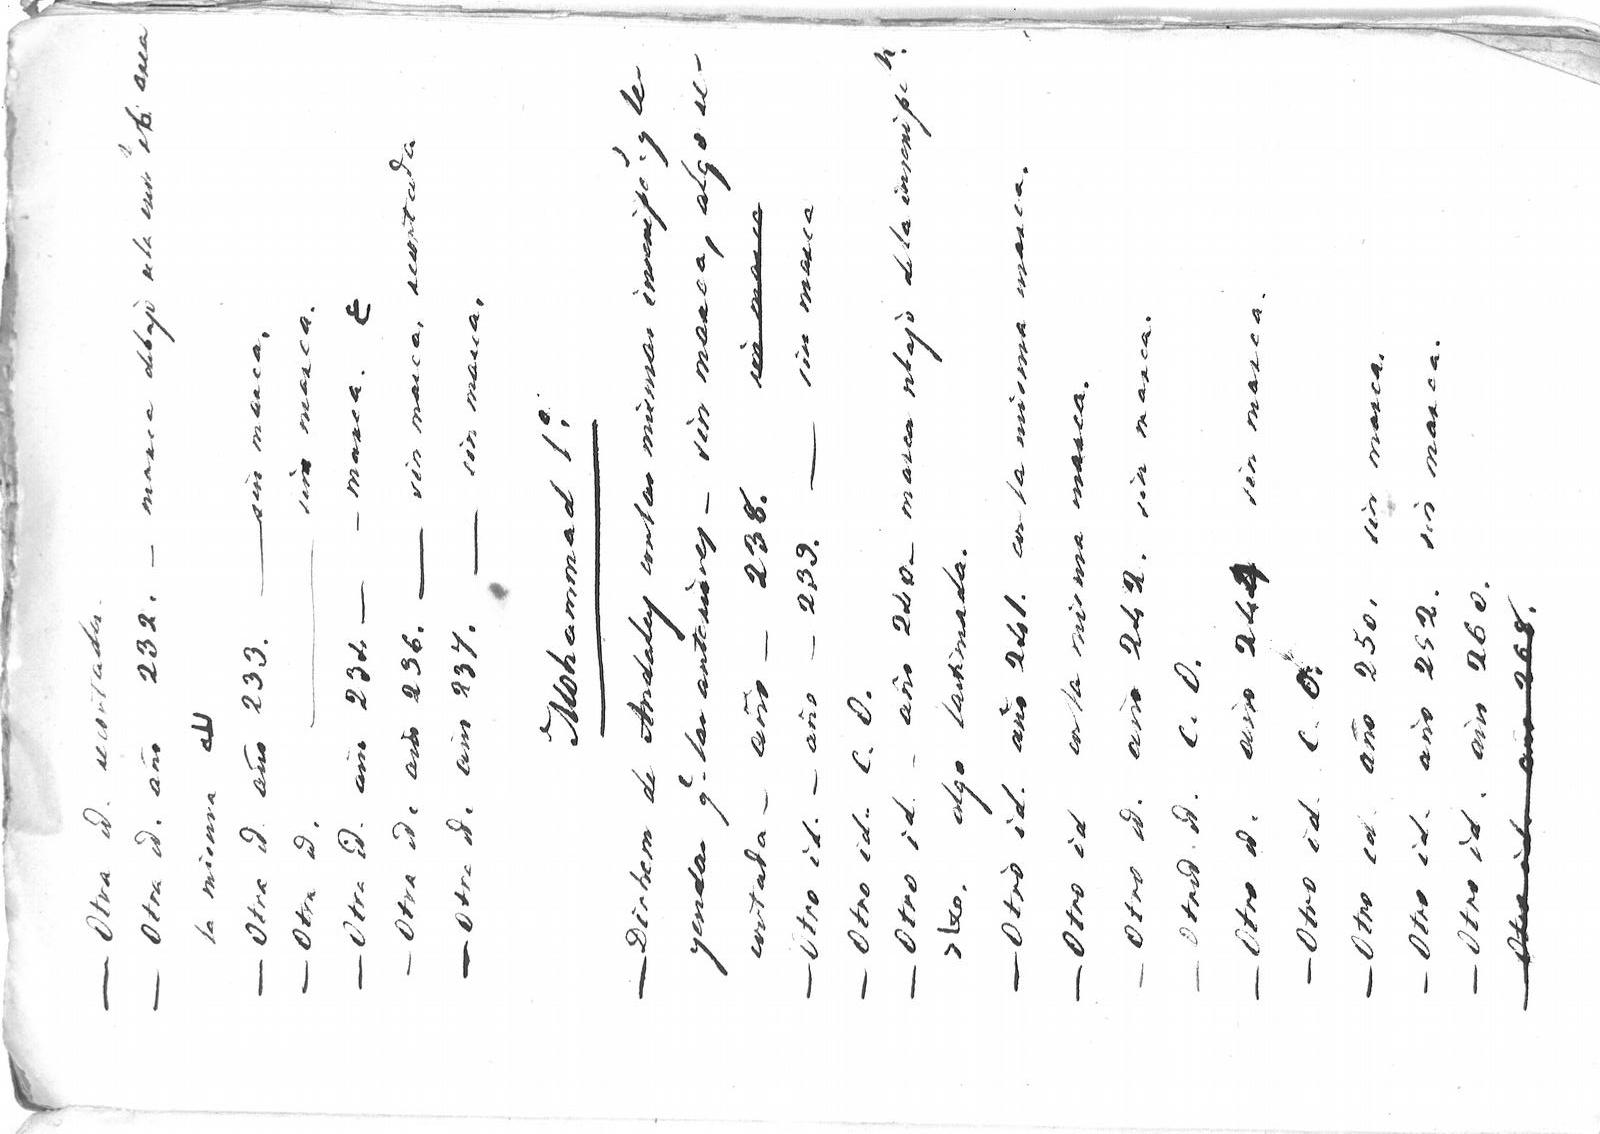 — Otra id. recortada.
— Otra id. año 232. — marca debajo de la area
la misma
— Otra id. año 233. — sin marca.
— Otra id. — sin marca.
— Otra id. año 234 — — marca.
— Otra id. año 236. — sin marca, recortada
— Otra id. año 237. — sin marca.
Mohammad 1º.
— Dirhem de Andalus con las mismas inscripc.s y le-
yendas q.e las anteriores — sin marca, algo re-
cortada — año — 238. sin marca
— Otro id. — año — 239. — sin marca
— Otro id. C. D.
— Otro id. — año 240 — marca abajo de la inscripc.n
algo lastimada.
— Otro id. año 241. con la misma marca.
— Otro id con la misma marca.
— Otro id. año 242. sin marca.
— Otro id. C. D.
— Otro id. año 244 sin marca.
— Otro id. C. D.
— Otro id. año 250. sin marca.
— Otro id. año 252. sin marca.
— Otro id. año 260.
— Otro id. año 268.